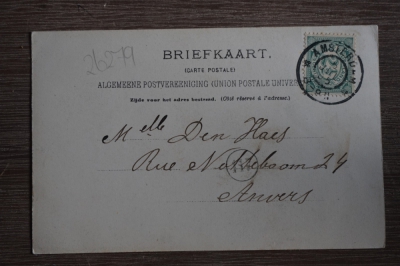 26519
BRIEFKAART.
(CARTE POSTALE)
ALGEMEENE POSTVEREENIGING (UNION POSTALE UNIVER
Zijde voor het adres bestemd. (Côté réservé à l'adresse.)
AMSTERDAM
Melle Den Haes
Rue Notteboom 24
Anvers